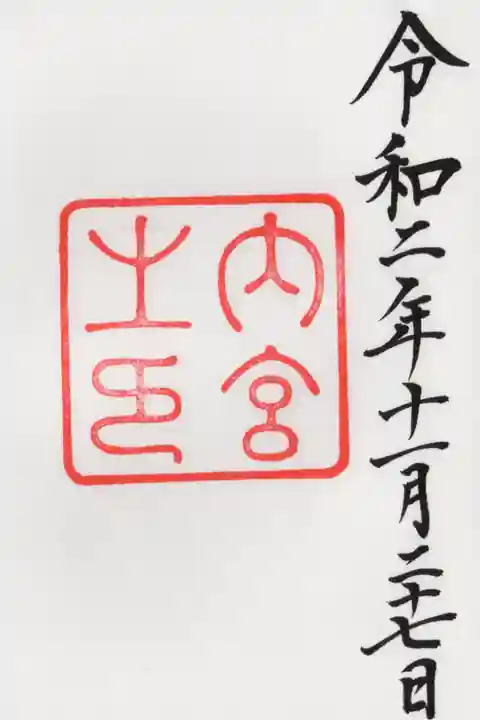 令和二年十一月二十七日
内宮
之印